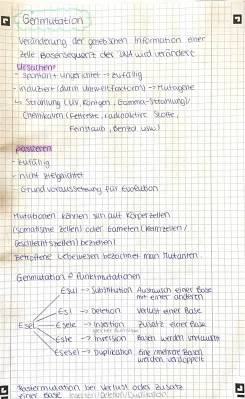 Genmutation
Veränderung der genetischen Information einer
Zelle Basensequenz der DNA wird verändert
Ursachen:
- spontan + ungerichtet → zufällig
- induziert (durch Umweltfaktoren) → Mutagene
↳ Strahlung (UV, Röntgen, Gamma-Strahlung)/
Chemikalien (Teerreste, radioaktive Stoffe,
Feinstaub, Benzol usw)
passieren
- zufällig
- nicht zielgerichtet
- Grundvoraussetzung für Evolution
Mutationen können sich auf Körperzellen
(somatische Zellen) oder Gameten (Keimzellen/
Geschlechtszellen) beziehen)
Betroffene Lebewesen bezeichnet man Mutanten.
Genmutation Punktmutationen
Esul → Substitution Austausch einer Base
mit einer anderen
Esl → Deletion Verlust einer Base
Esel Esele → Insertion Zusatz einer Base
Esle → Inversion Basen werden vertauscht
Eselsel → Duplication Eine/mehrere Basen
werden verdoppelt
Rastermutation bei Verlust oder Zusatz
einer Base Insertion/Deletion/Duplication